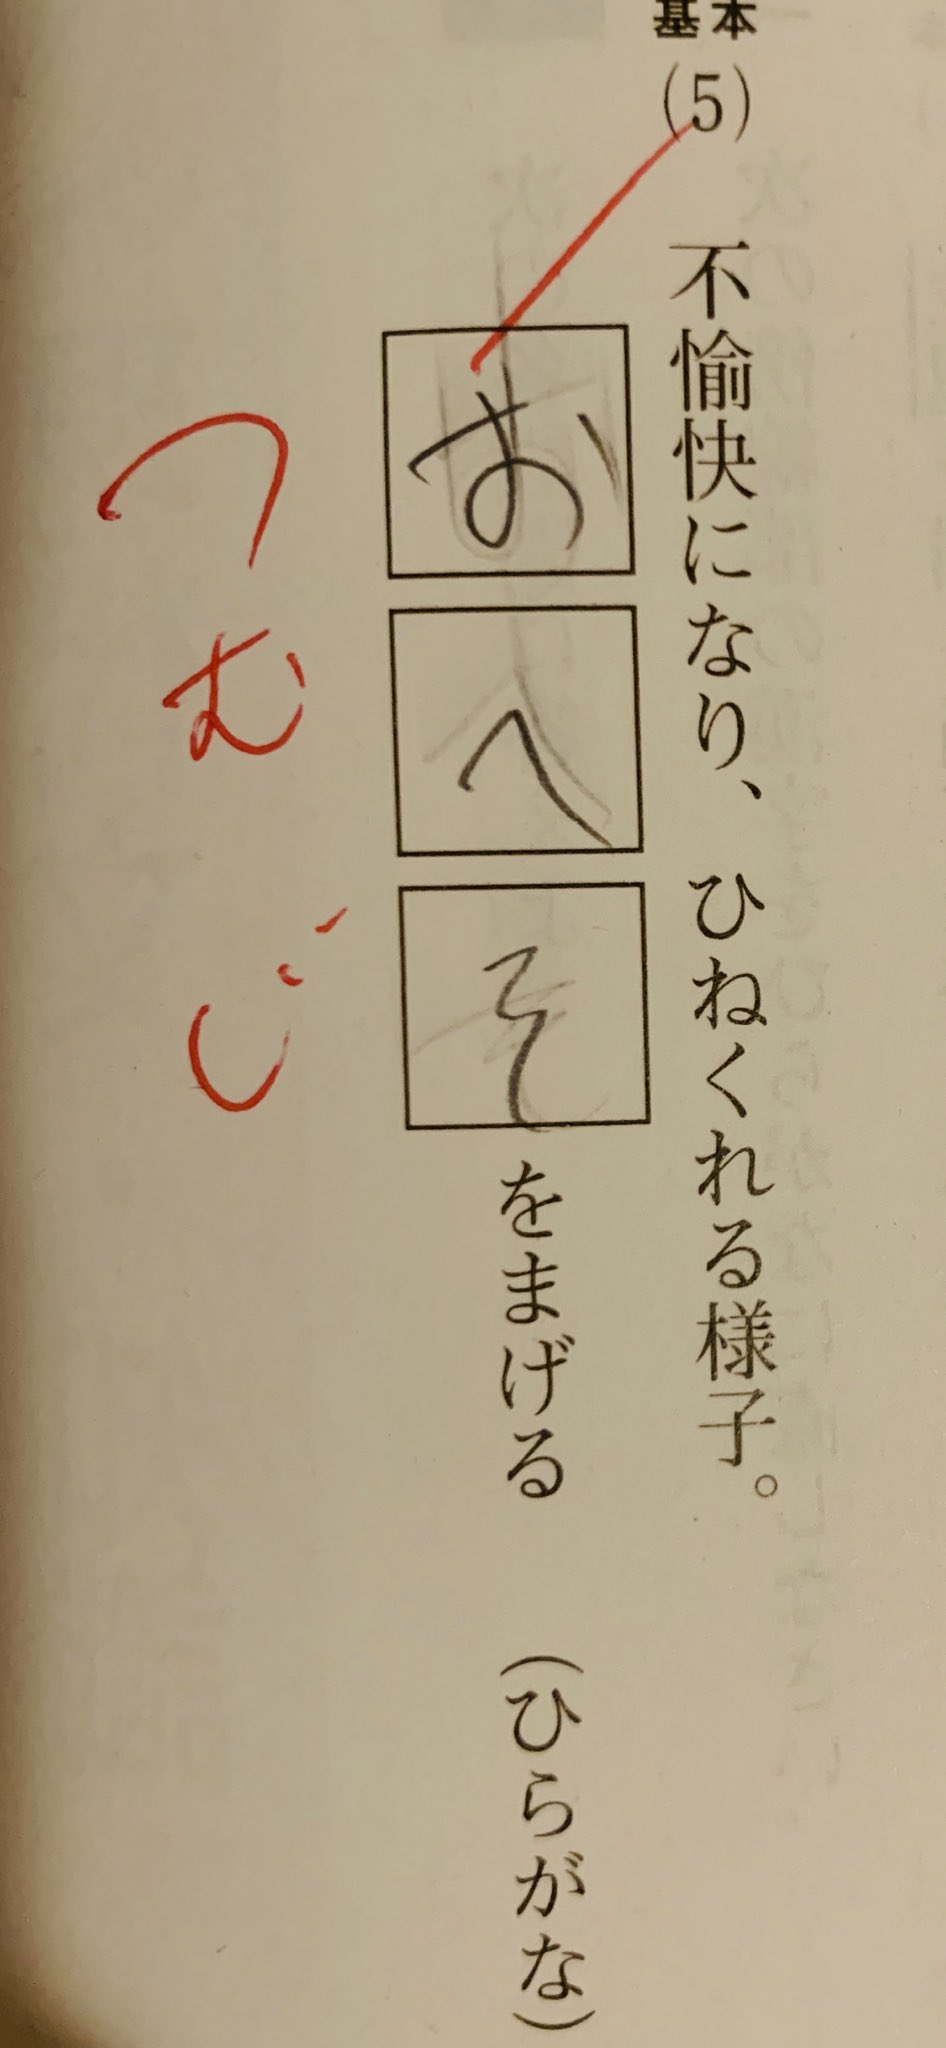 基本
(5) 不愉快になり、ひねくれる様子。
おへそをまげる (ひらがな)
つむじ